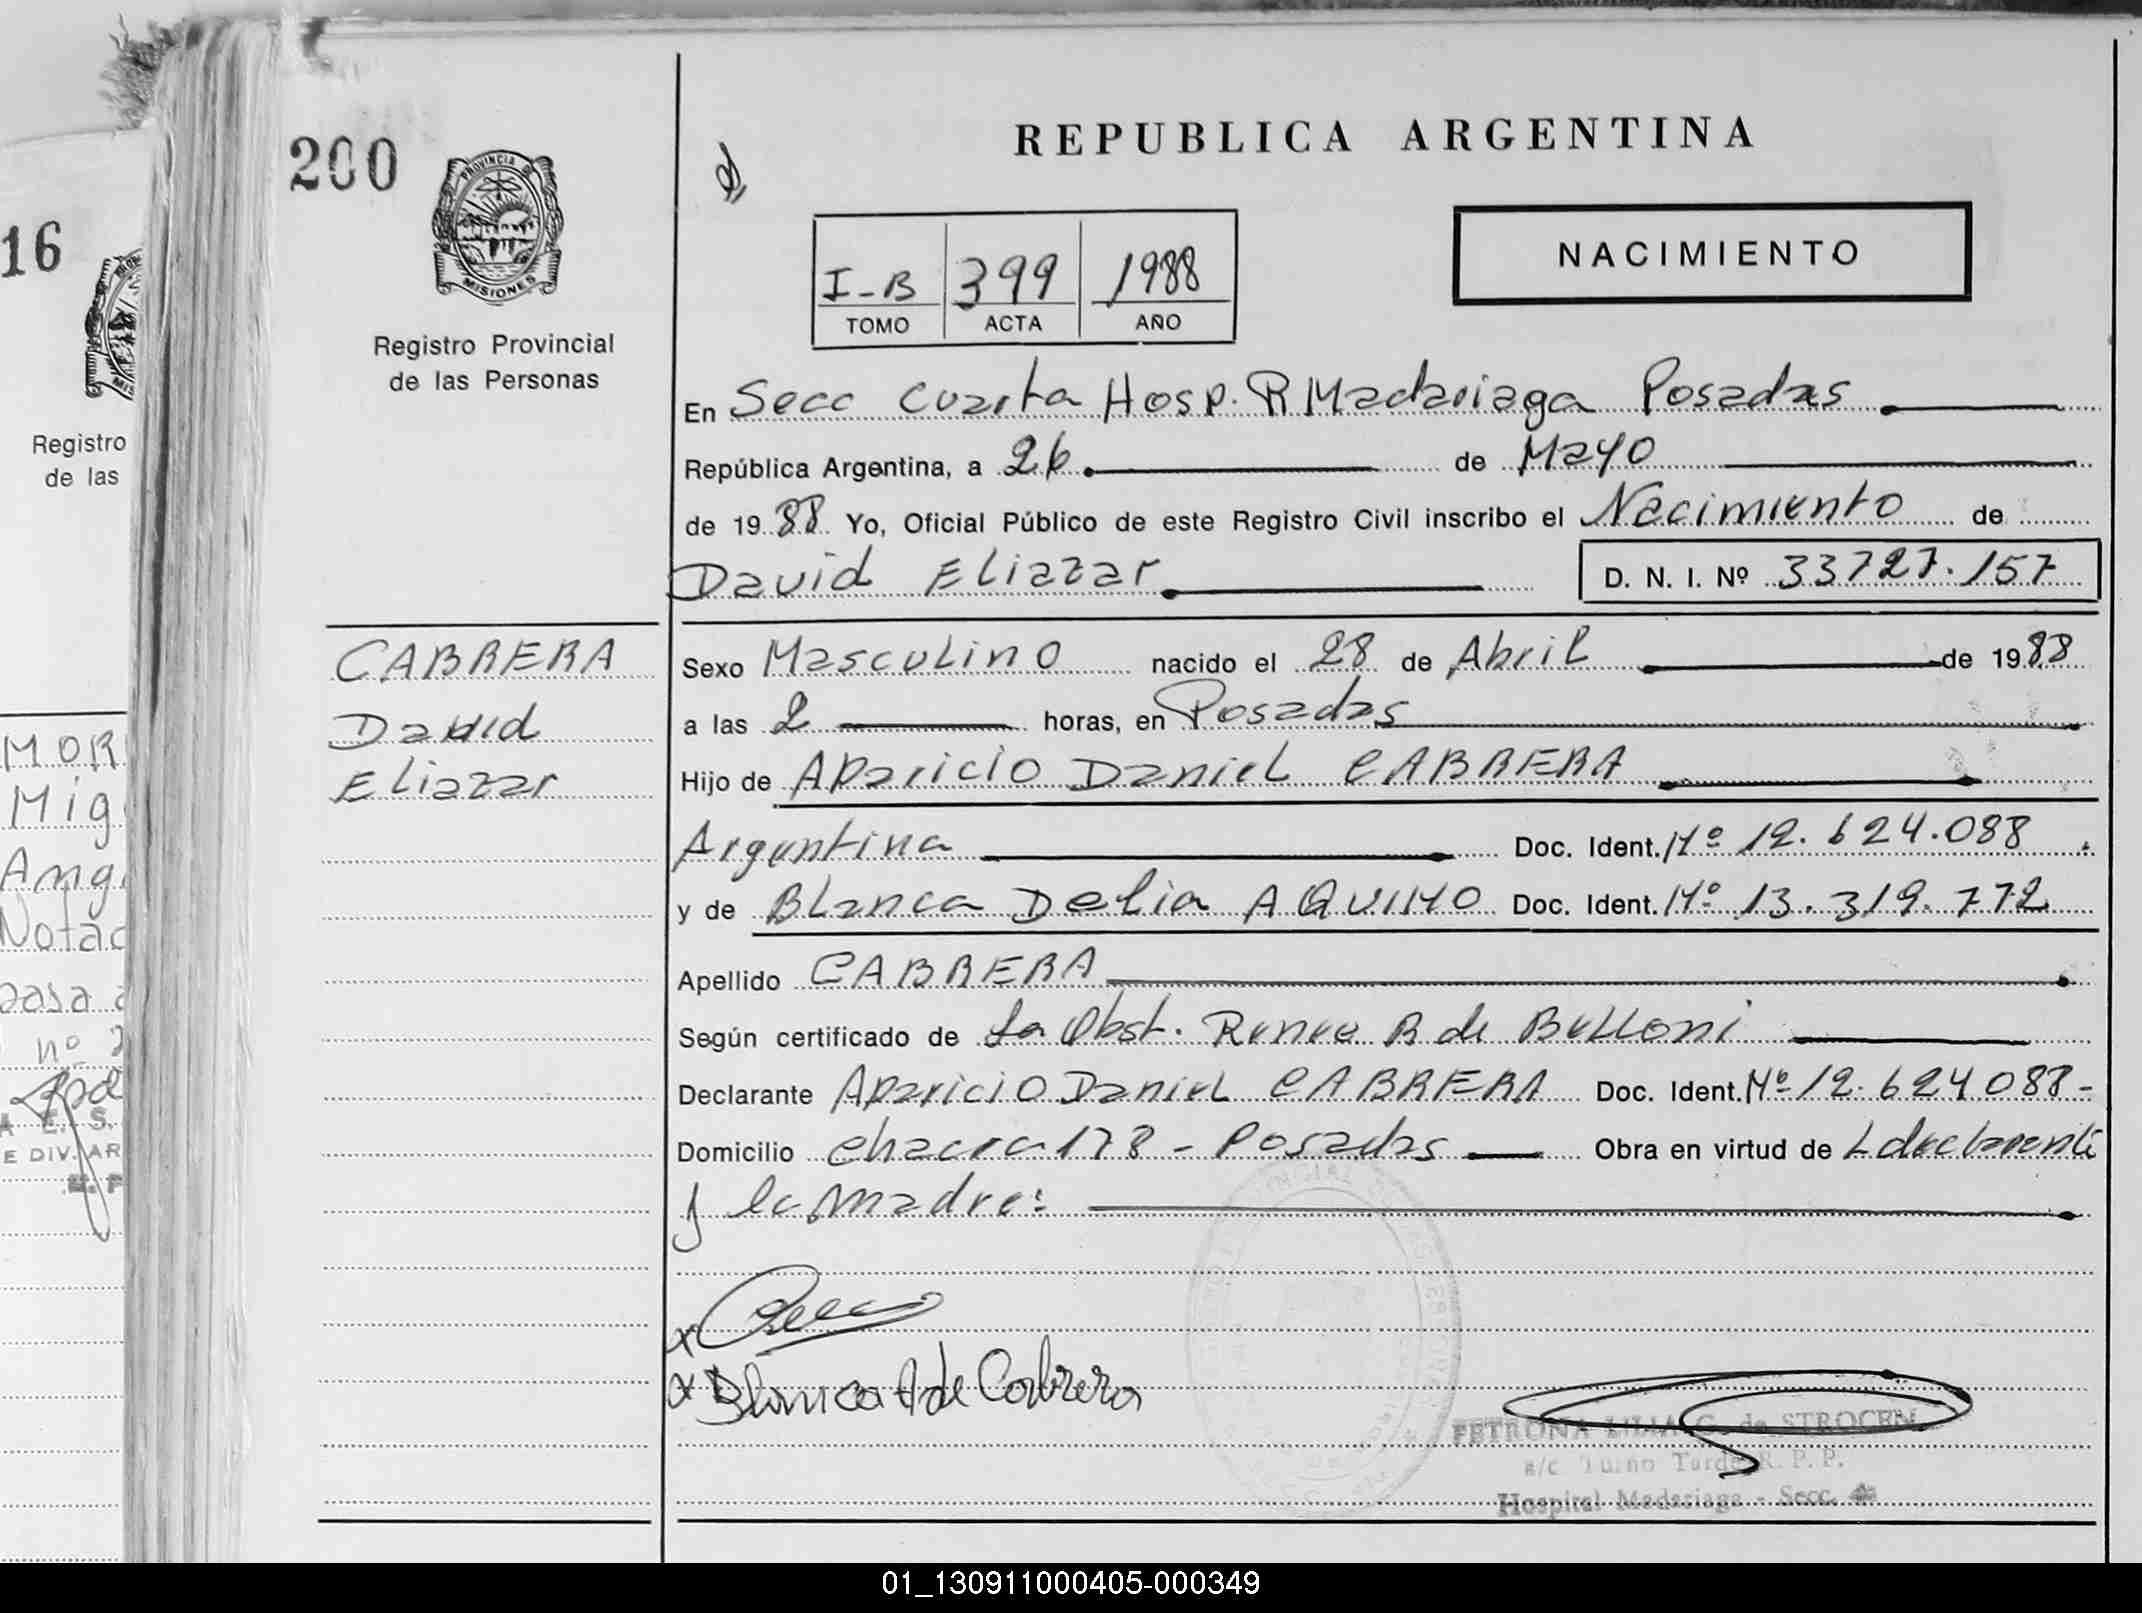 200
PROVINCIA DE
MISIONES
Registro Provincial
de las Personas
REPUBLICA ARGENTINA
NACIMIENTO
I-B 399 1988
TOMO ACTA AÑO
En Secc Cuarta Hosp. R Madariaga Posadas
República Argentina, a 26 de Mayo
de 1988 Yo, Oficial Público de este Registro Civil inscribo el Nacimiento de
David Eliazar D. N. I. Nº 33727.157
CABRERA
David
Eliazar
Sexo Masculino nacido el 28 de Abril de 1988
a las 2 horas, en Posadas
Hijo de Aparicio Daniel CABRERA
Argentina Doc. Ident. Nº 12.624.088
y de Blanca Delia AQUINO Doc. Ident. Nº 13.319.772
Apellido CABRERA
Según certificado de La Obst. Renee R de Belloni
Declarante Aparicio Daniel CABRERA Doc. Ident. Nº 12.624088-
Domicilio chacra 178 - Posadas Obra en virtud de L declarante
y la madre:
x
x Blanca A de Cabrera
PETRONA LILIA G. de STROCEN
a/c Turno Tarde R. P. P.
Hospital Madariaga - Secc. 4a
16
Registro
de las
MOR
Mig
Ang
Notac
casa
nº 2
E. S.
E DIV. AR
01_130911000405-000349